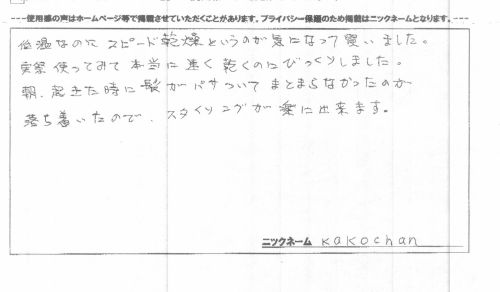 ---使用感の声はホームページ等で掲載させていただくことがあります。プライバシー保護のため掲載はニックネームとなります。---
低温なのに スピード乾燥というのが気になって買いました。
実際 使ってみて 本当に速く 乾くのにびっくりしました。
朝、起きた時に 髪が パサついて まとまらなかったのが
落ち着いたので、スタイリングが 楽に出来ます。
ニックネーム kakochan